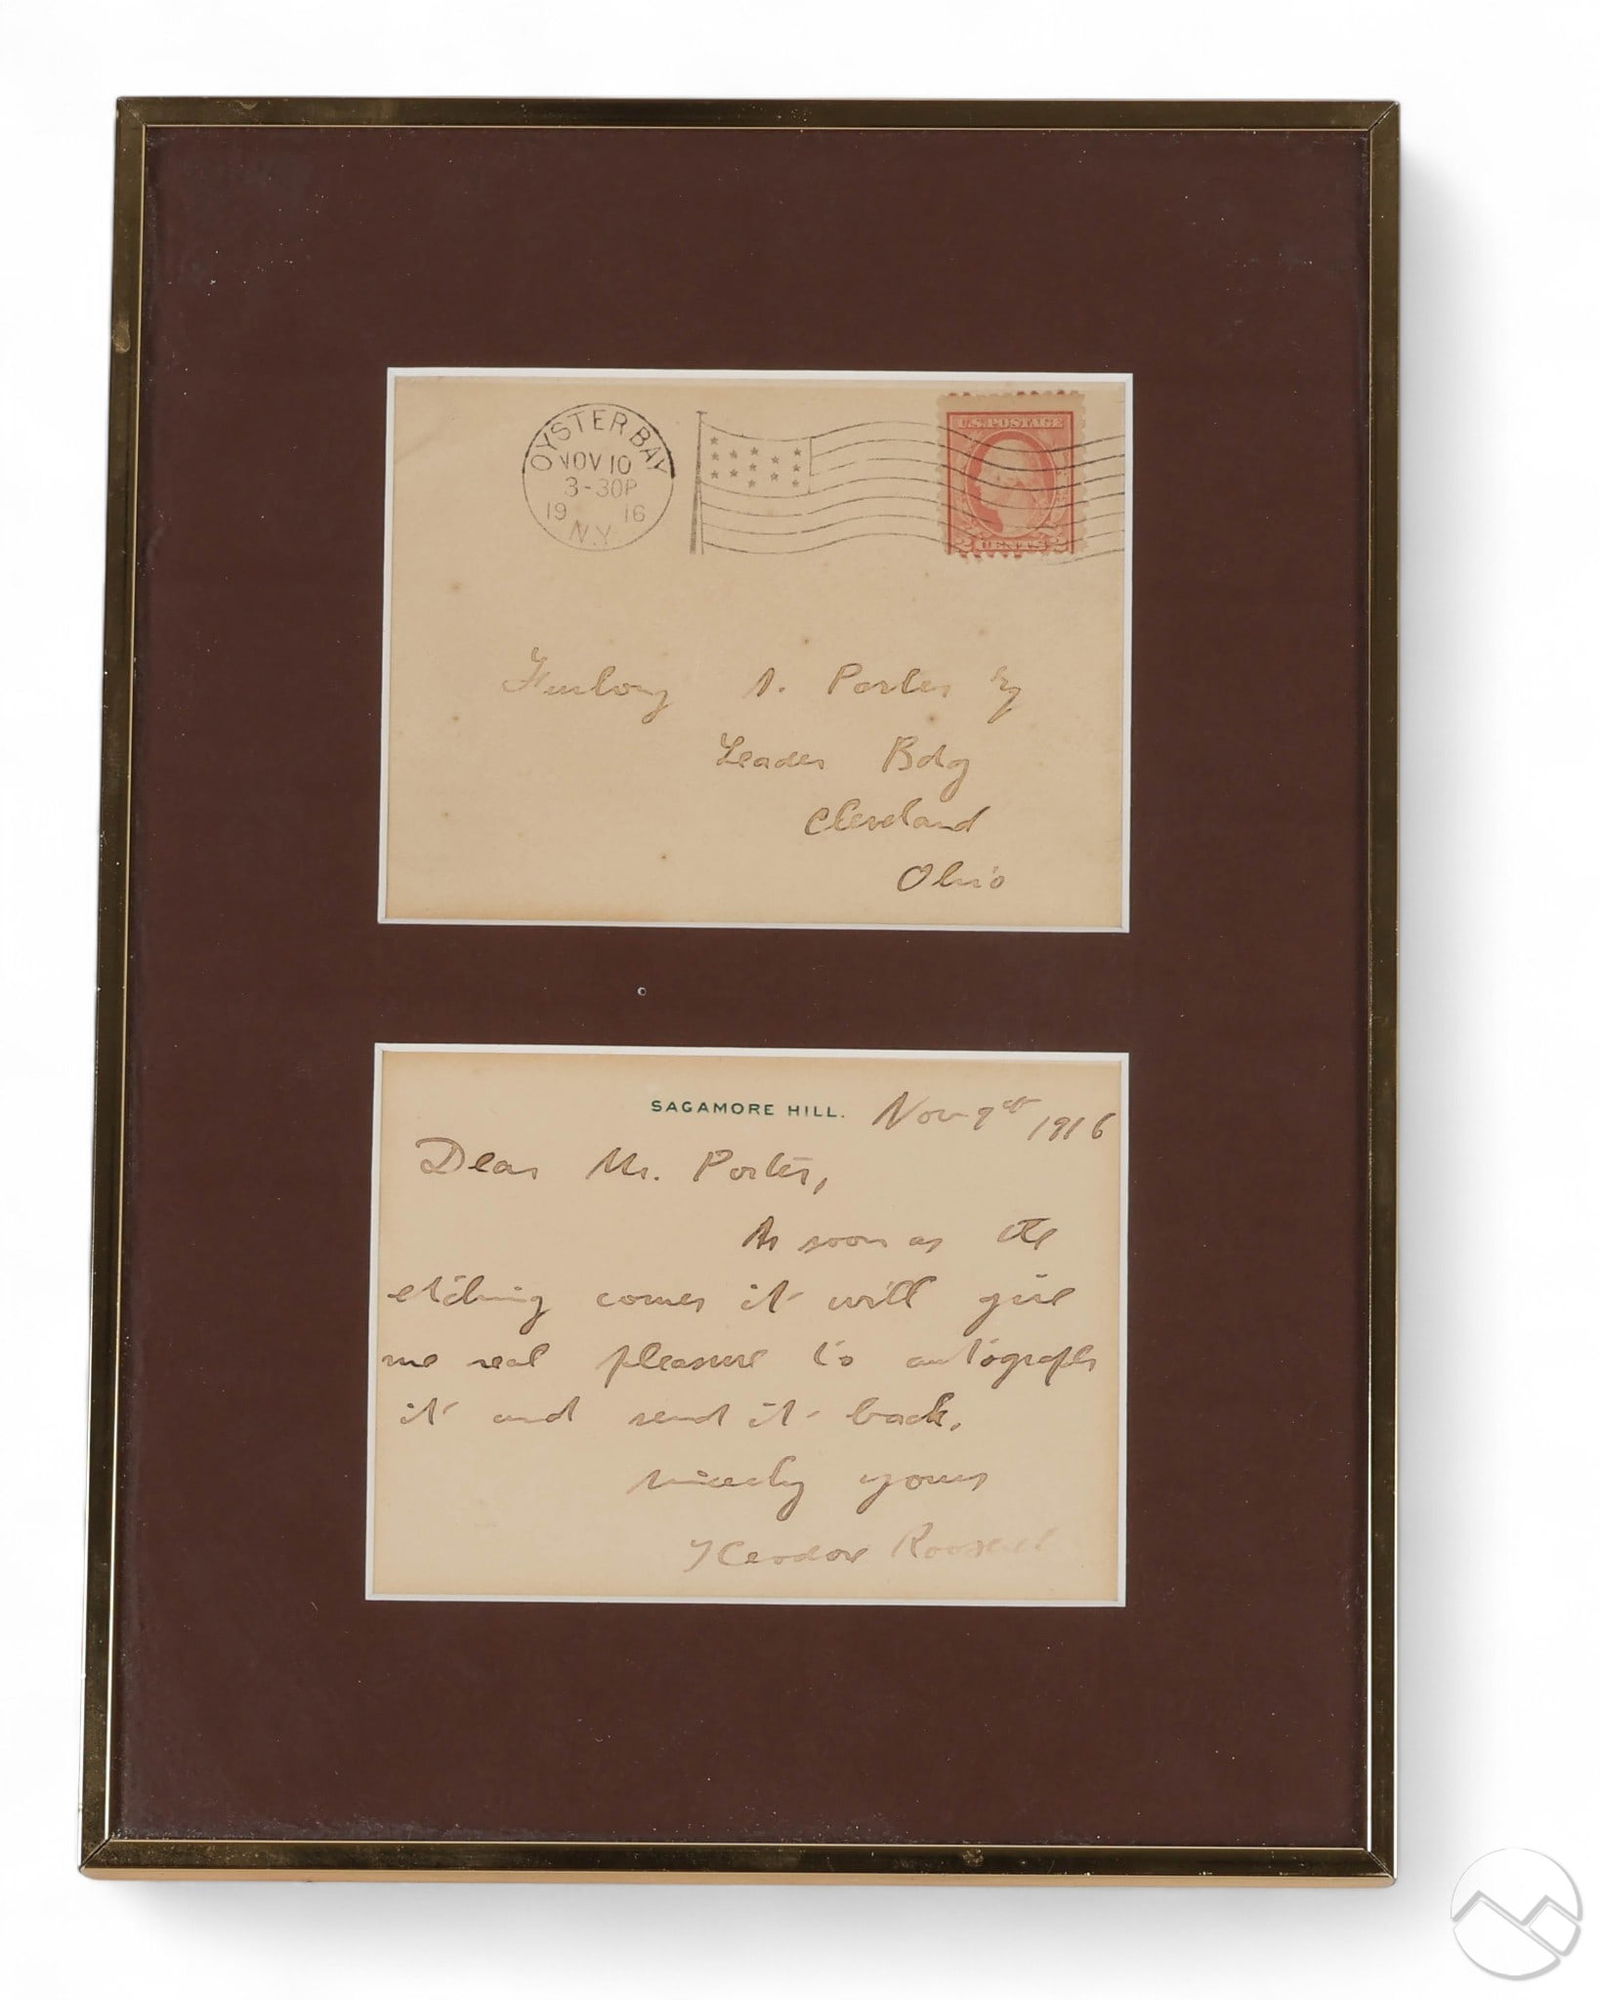 OYSTER BAY
NOV 10
3-30P
19 16
N.Y.
U.S. POSTAGE
2 CENTS 2
Furlong S. Porter Esq
Leader Bdg
Cleveland
Ohio
SAGAMORE HILL. Nov 9th 1916
Dear Mr. Porter,
As soon as the
etching comes it will give
me real pleasure to autograph
it and send it back.
Sincerely yours
Theodore Roosevelt